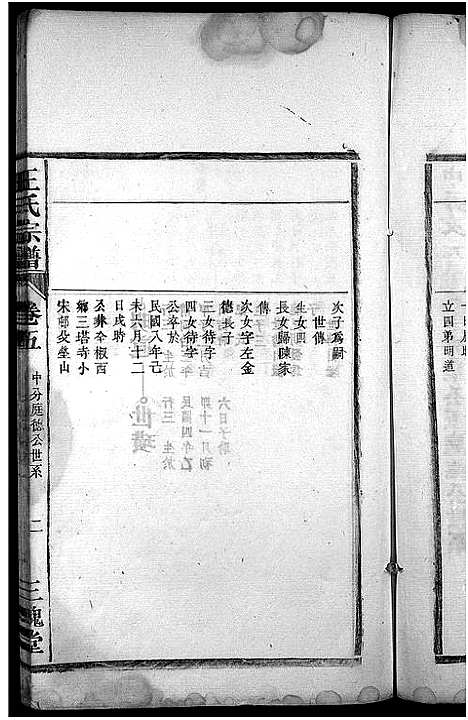 日戌時
立四弟明道
次子為嗣
世傳
生女四
長女歸陳家
傳
次女字左金
德長子
三女待字
四女待字
公卒於
民國八年己
未六月十二
日戌時
公葬全椒西
鄉三塔寺小
宋郢灸塋山
王氏宗譜
卷五
中分庭德公世系
二
三槐堂